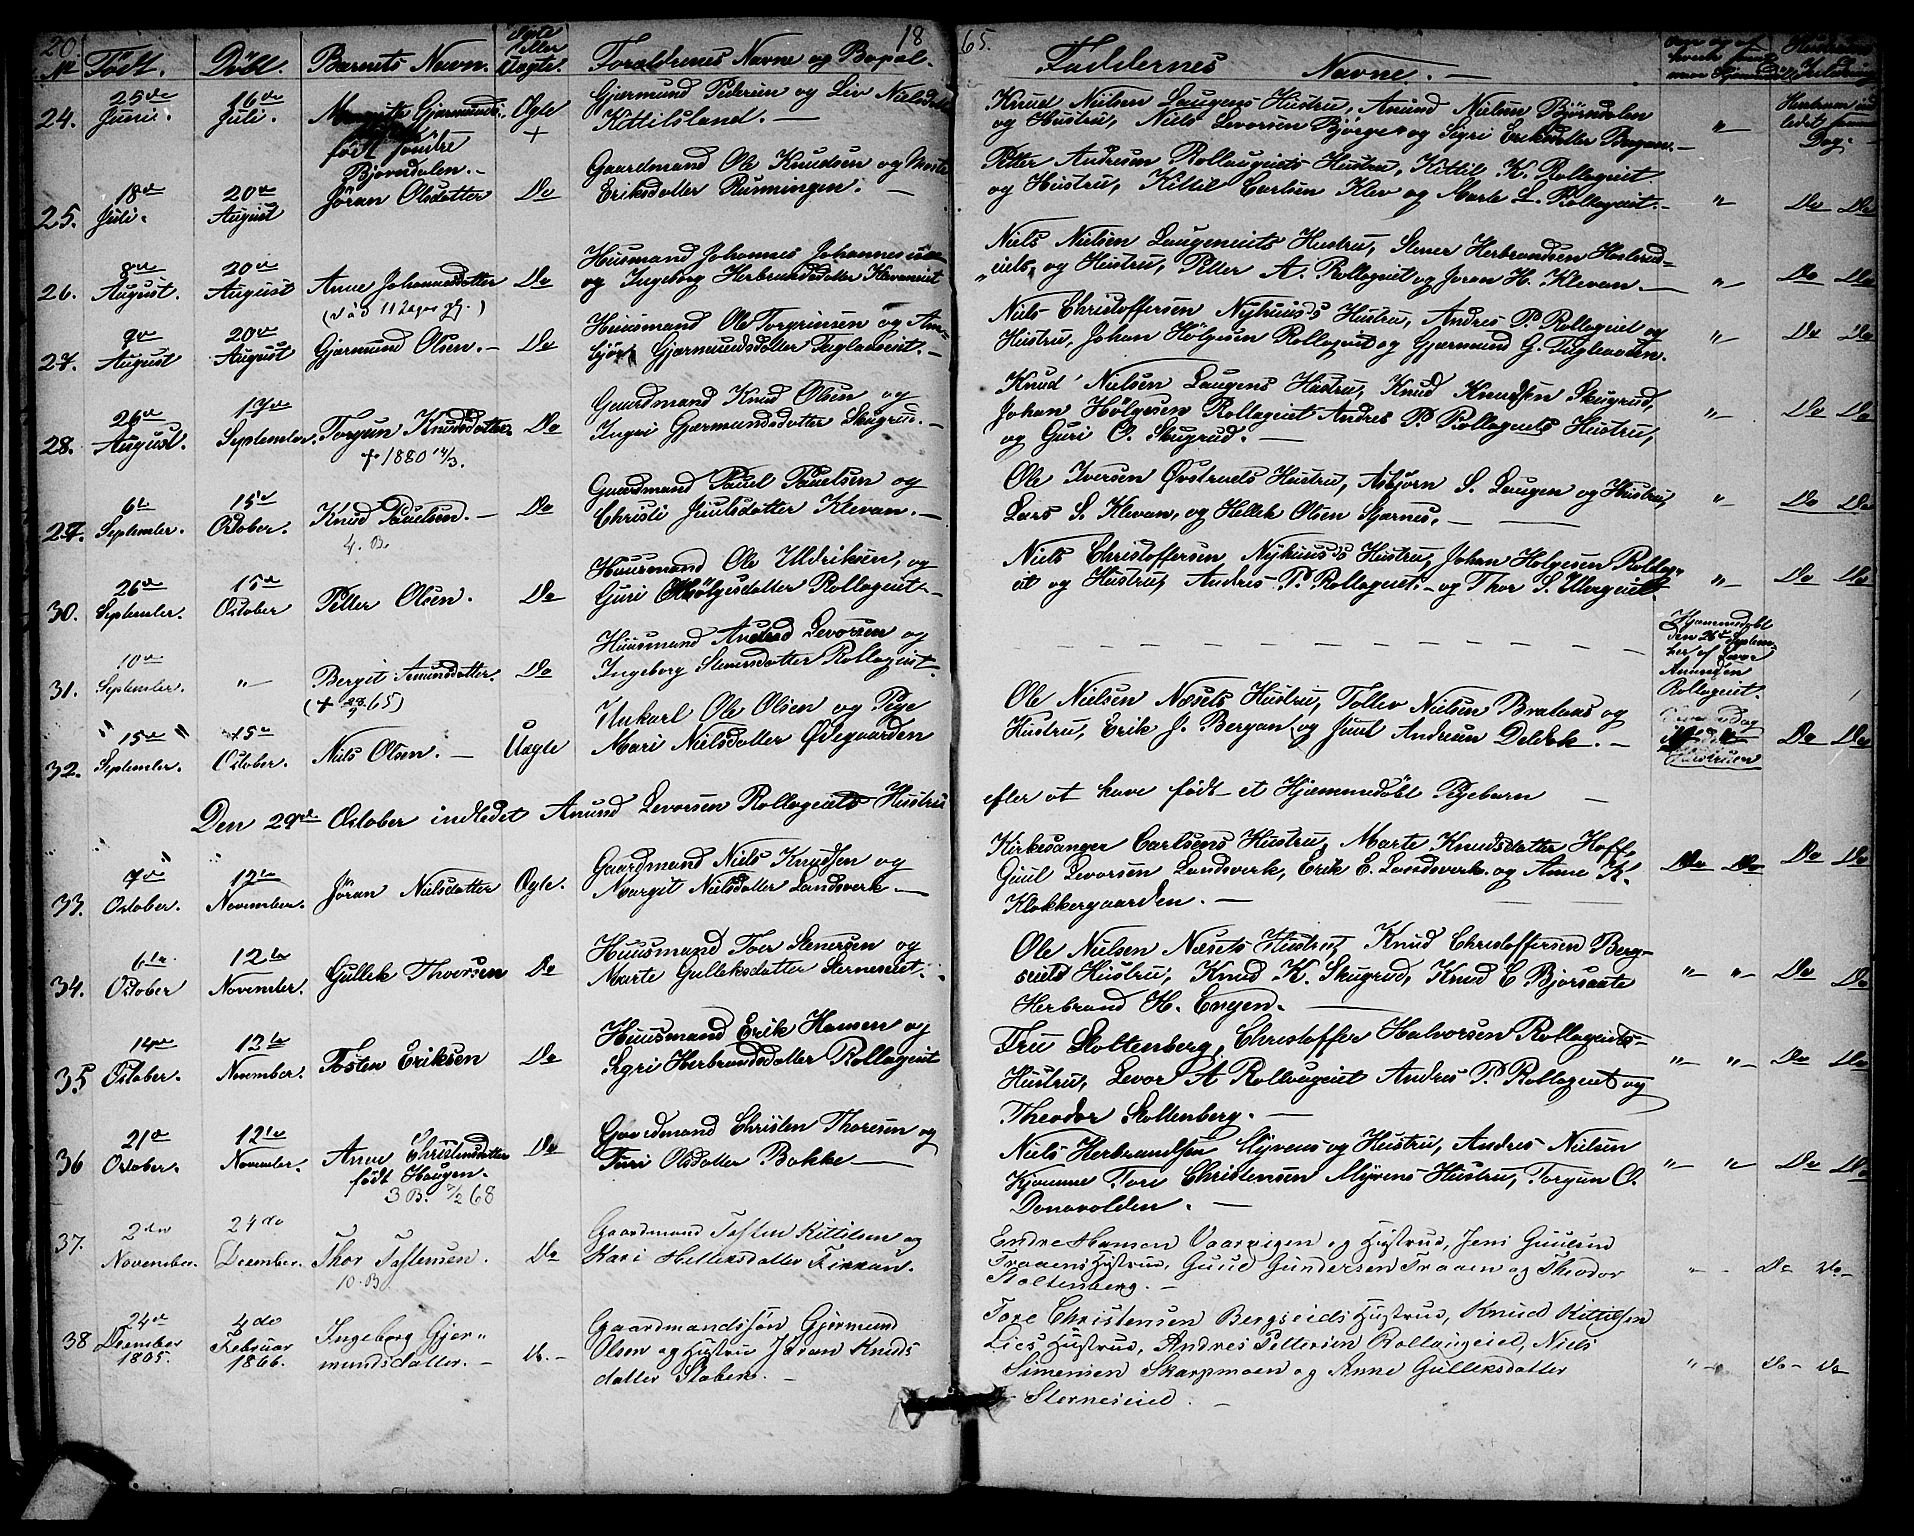 20
1865.
No Födt. Döbt. Barnets Navn. Ægte eller Uægte. Forældrenes Navne og Bopæl. Faddernes Navne. —
24. 25de Juni. 16de Juli. Gjermunds. Ægte + Gjærmund Pedersen og Liv Nielsdatter
Kittilsland. —
födt söndre
Bjövedalen. —
Knud Nielsen Laugens Hustru, Anund Nielsen Björndalen
og Hustru, Niels Levorsen Björge og Sigri Eriksdatter Bergan. — "
25. 18de Juli. 20de August Jöran Olsdatter Do Gaardmand Ole Knudsen og
Eriksdatter Runningen. —
Petter Andersen Rollaugeiets Hustru, Kittil K. Rollageiet
og Hustru, Kittil Carlsen Klev og Marte L. Rollageiet. — " Do Do
26. 8de August. 20de August Anne Johannesdatter Do Huusmand Johannes Johannessen
og Ingeborg Herbrandsdatter Klevaneiet
Niels Nielsen Laugeneiets Hustru, Stener Herbrandsen
eiets, og Hustru, Petter A. Rollageiet og Joran H. Klevan. — " Do Do
27. 9de August 20de August Gjermund Olsen. — Do Huusmand Ole Torgrimsen og
Gjærmundsdatter
Niels Christoffersen Nyhuuds Hustru, Andres P. Rollageiet og
Hustru, Johan Hölgesen Rollageiet og Gjærmund G. " Do Do
28. 26de August. 17de September. Torgun Knudsdatter. Do
+ 1880 14/3.
Gaardmand Knud Olsen og
Ingri Gjærmundsdatter Skugrud. —
Knud Nielsen Laugens Hustru, Knud Knudsen Skugrud,
Johan Hölgesen Rollageiet Andres P. Rollageiets Hustru,
og Guri O. Skugrud. — " Do Do
29. 6te September. 15de October. Knud Paulsen. — Do
4. B.
Gaardmand Paul Paulsen og
Christi Juulsdatter Klevan. —
Ole Iversen Övstruds Hustru, Asbjörn S. Laugen og Hustru,
Lars S. Klevan, og Hellek Olsen Stjærnes. — " Do Do
30. 26de September. 15de October Petter Olsen. Do Huusmand Ole Uldriksen, og
Guri Hölgesdatter Rollageiet —
Niels Christoffersen Nyhuuds Hustru, Johan Holgesen Rollag-
eiet og Hustru, Andres P. Rollageiet. — og Thor S. " Do Do
31. 10de September. " Bergit Anundsdatter. Do
Huusmand Anund Levorsen og
Ingeborg Stenersdatter Rollageiet.
Hjemmedöbt
den 26de Septem-
ber af Levor
Anundsen
Rollageiet.
32. 15de September. 15de October. Niels Olsen. — Uægte Ungkarl Ole Olsen og Pige
Mari Nielsdatter Ödegaarden
Ole Nielsen Næsets Hustru, Tollev Nielsen Bratens og
Hustru, Erik J. Bergan og Juul Andersen — Do Do
Den 29de October indledet Anund Levorsen Rollageiets Hustru efter at have födt et Hjemmedöbt Pigebarn —
33. 7de October. 12te November. Jöran Nielsdatter Ægte. Gaardmand Niels Knudsen og
Margit Nielsdatter Landsverk —
Kirkesanger Carlsens Hustru, Marte Knudsdatter Hoff,
Guul Levorsen Landsverk, Erik E. Landsverk og Anne K.
Klokkergaarden. — Do Do Do Do
34. 6te October 12te November. Gullek Thorsen Do Huusmand Tor Stenersen og
Marte Gulleksdatter Sterneseiet.
Ole Nielsen Næsets Hustru, Knud Christoffersen Berg-
seiets Hustru, Knud K. Skugrud, Knud C.
Herbrand H. Engen. — " " Do Do
35 14de October. 12te November. Tosten Eriksen Do Huusmand Erik Hansen og
Sigri Herbrandsdatter Rollageiet
Fru Stoltenberg, Christoffer Halvorsen Rollageiets
Hustru, Levor A Rollaugeiet Andres P. Rollageiet og
Theodor Stoltenberg. — " " Do Do
36 21de October. 12te November. Anne Christensdatter Do
födt Haugen.
3 B. 7/2 68
Gaardmand Christen Thoresen og
Turi Olsdatter Bakke —
Niels Herbrandsen Myrens og Hustru, Andres Nielsen
Kjomme Tore Christensen Myrens Hustru, Torgun O.
Donavolden. — " " Do Do
37. 2den November. 24de December. Thor Tostensen. Do
10. B.
Gaardmand Tosten Kittilsen og
Kari Helleksdatter
Endre Hansen Vaarvigen og Hustru, Jens Guulsen
Traaens Hustru, Guul Gundersen Traaen og Theodor
Stoltenberg. — " — Do Do —
38 24de December 1865. 4de Februar 1866. Ingeborg Gjer-
mundsdatter. — Do. —
Gaardmandssön Gjermund
Olsen og Hustru Jöran Knuds
datter Staberg. —
Tore Christensen Bergseieds Hustru, Knud Kittilsen
Lies Hustru, Andres Pettersen Rollaugeied, Niels
Simensen Skarpmoen og Anne Gulleksdatter
Sterneseied. — " Do — Do —